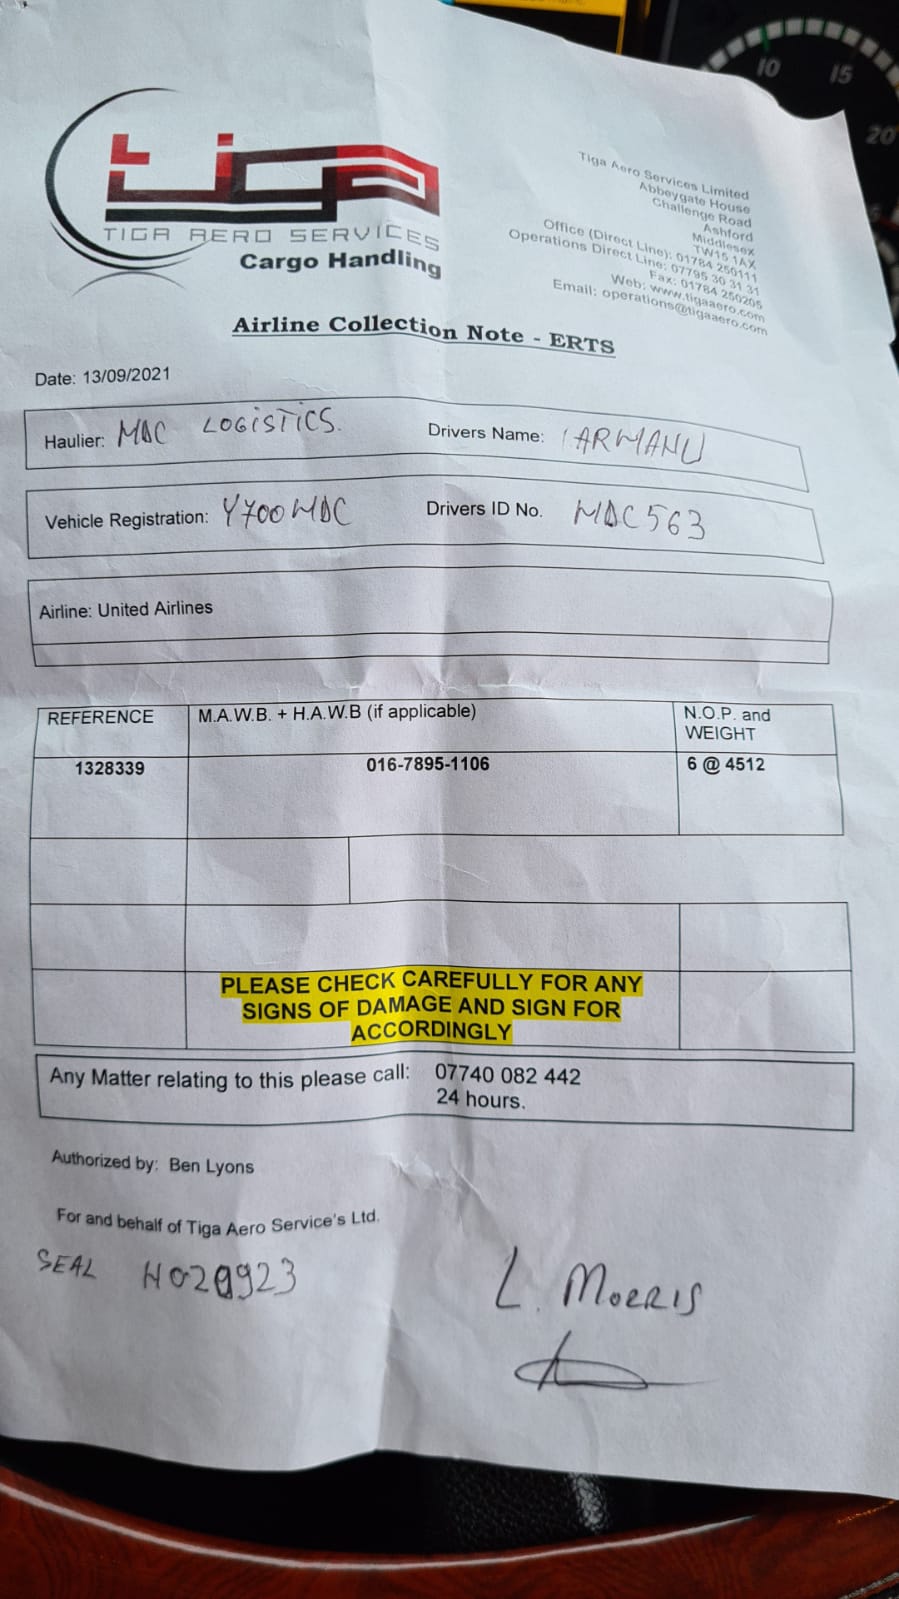 tiga
TIGA AERO SERVICES
Cargo Handling
Tiga Aero Services Limited
Abbeygate House
Challenge Road
Ashford
Middlesex
TW15 1AX
Office (Direct Line): 01784 250111
Operations Direct Line: 07795 30 31 31
Fax: 01784 250205
Web: www.tigaaero.com
Email: operations@tigaaero.com
Airline Collection Note - ERTS
Date: 13/09/2021
Haulier: MDC LOGISTICS. Drivers Name:
Vehicle Registration: Y700MDC Drivers ID No. MDC563
Airline: United Airlines
REFERENCE M.A.W.B. + H.A.W.B (if applicable) N.O.P. and
WEIGHT
1328339 016-7895-1106 6 @ 4512
PLEASE CHECK CAREFULLY FOR ANY
SIGNS OF DAMAGE AND SIGN FOR
ACCORDINGLY
Any Matter relating to this please call: 07740 082 442
24 hours.
Authorized by: Ben Lyons
For and behalf of Tiga Aero Service's Ltd.
SEAL
L. MORRIS
10
15
20